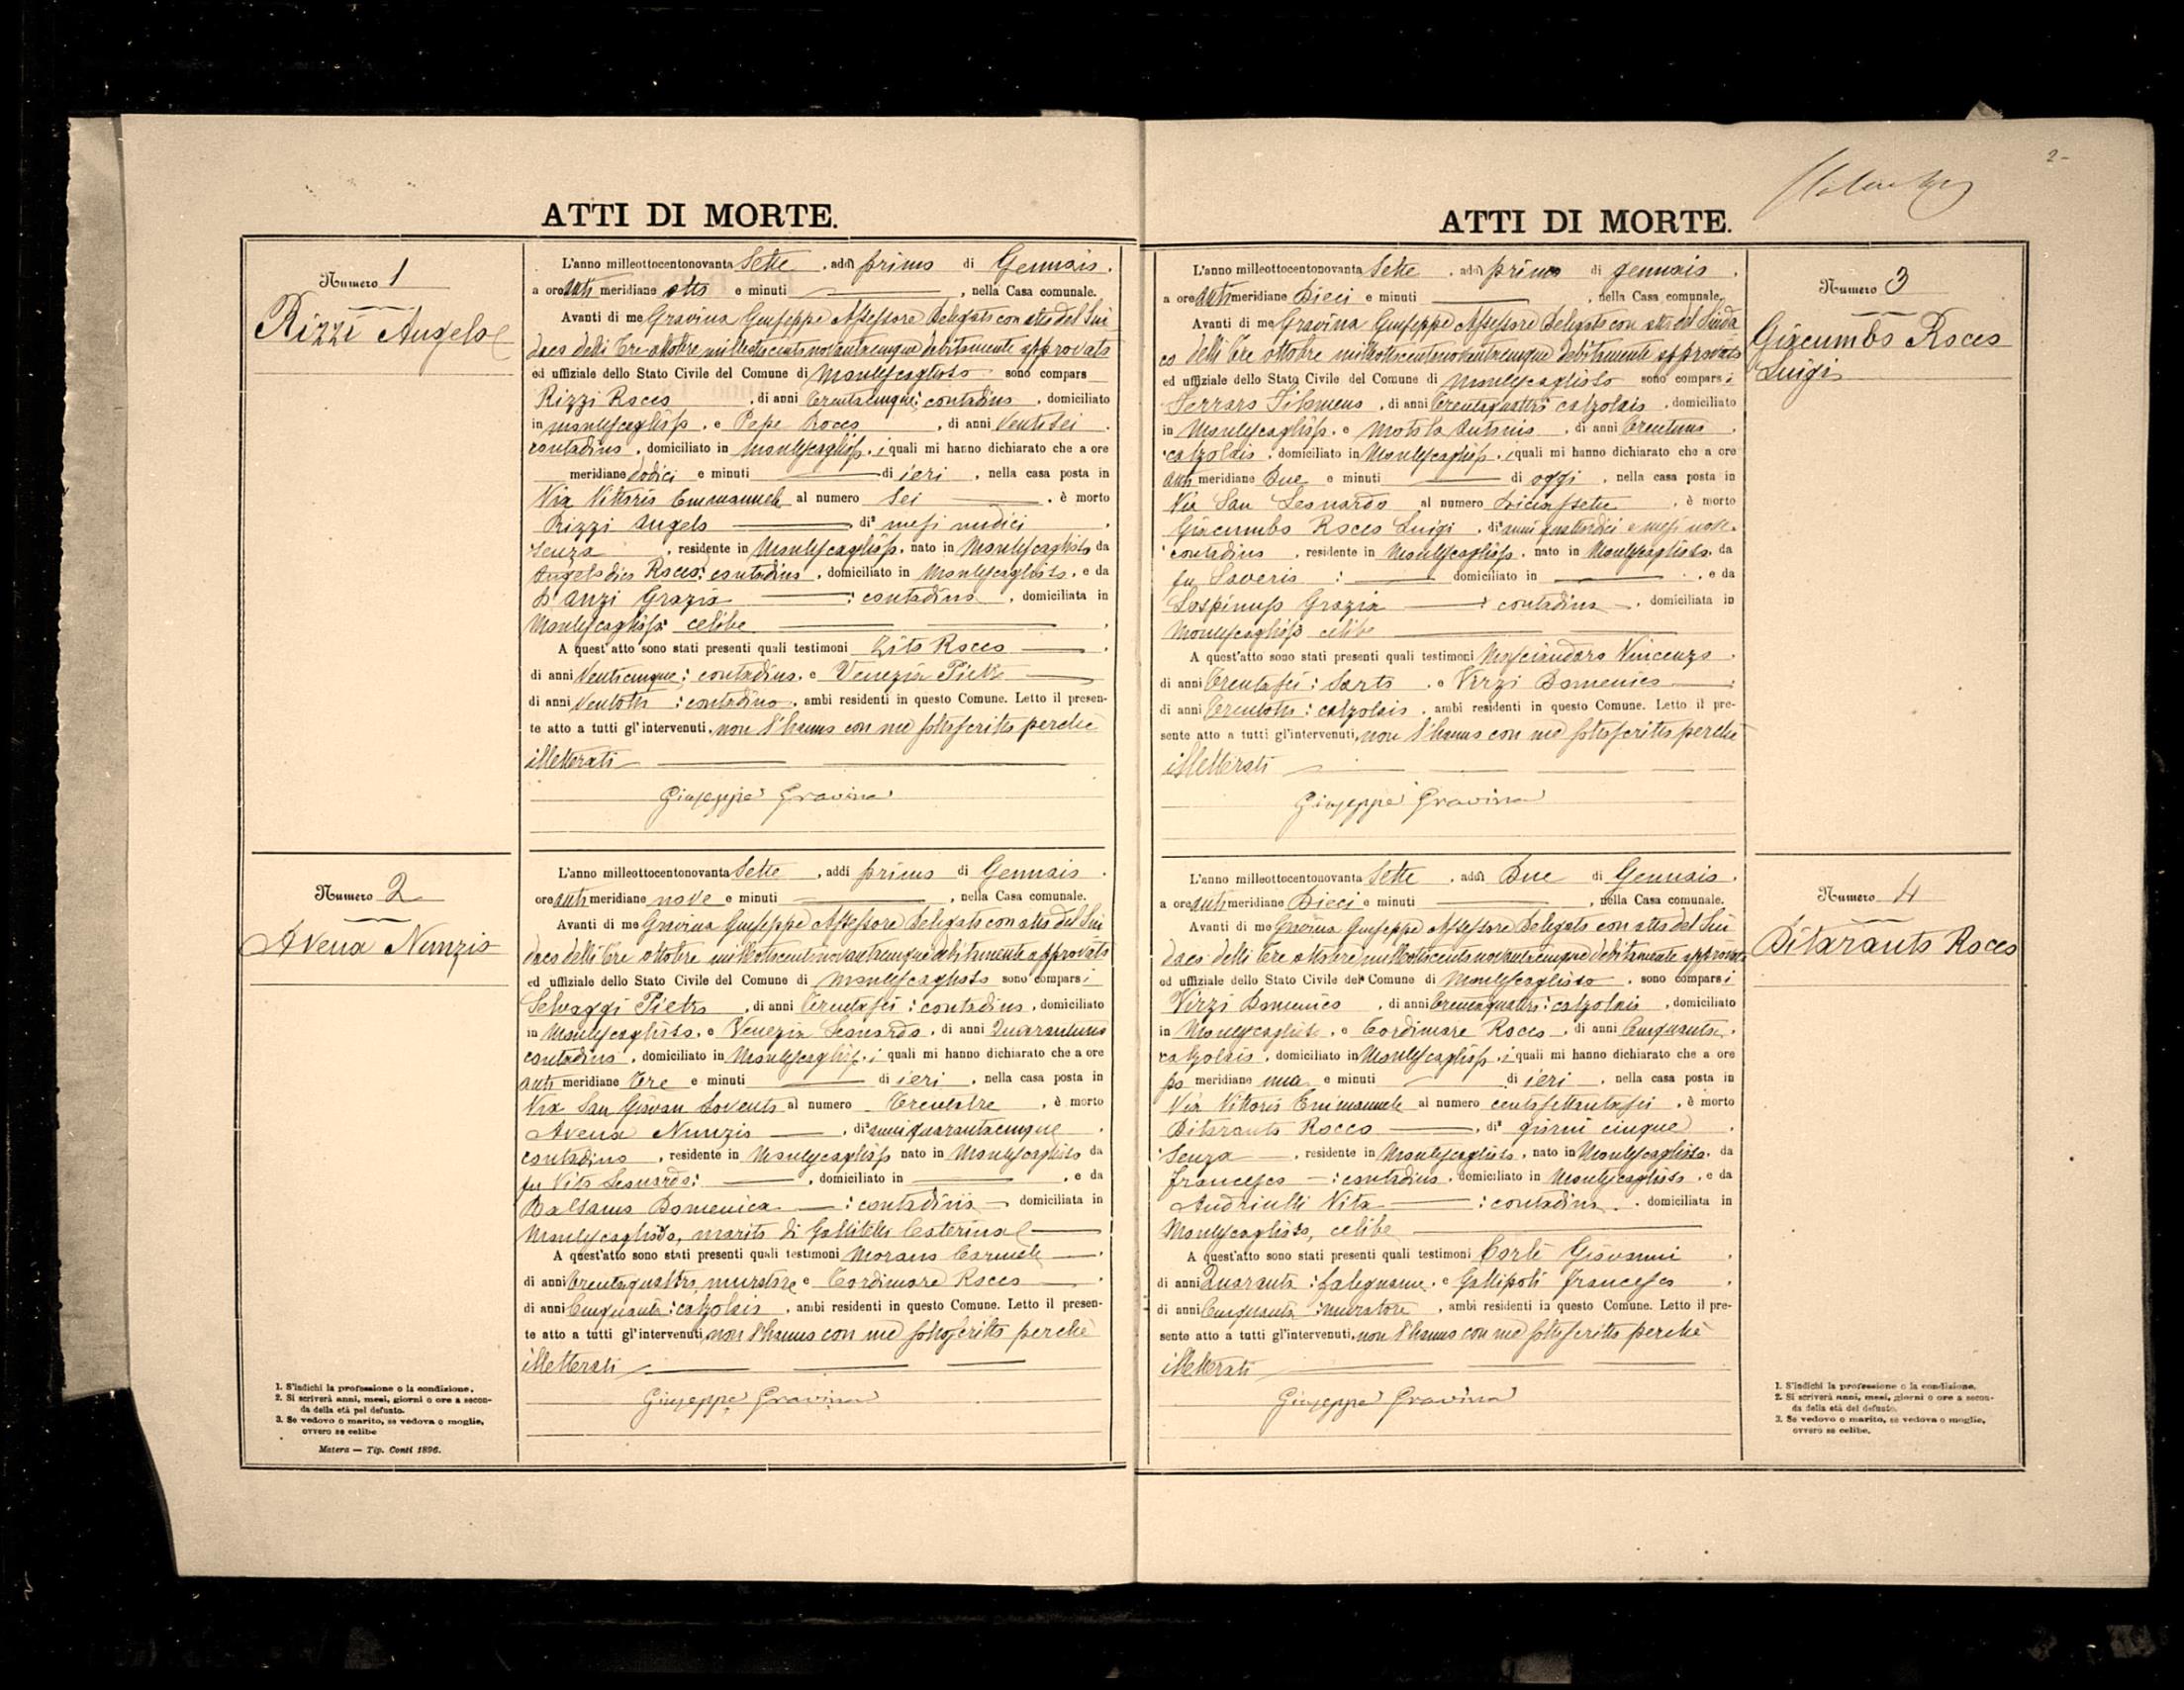 ATTI DI MORTE.
Numero 1
Rizzi Angelo
L'anno milleottocentonovanta Sette, addì primo di Gennaio.
a ore anti meridiane otto e minuti ———, nella Casa comunale.
Avanti di me Gravina Giuseppe Assessore Delegato con atto del Sin
daco delli tre ottobre milleottocentonovantacinque debitamente approvato
ed uffiziale dello Stato Civile del Comune di Montescaglioso sono compars
Rizzi Rocco, di anni trentacinque; contadino, domiciliato
in Montescaglioso, e Pepe Rocco, di anni ventisei
contadino, domiciliato in Montescaglioso, i quali mi hanno dichiarato che a ore
meridiane dodici e minuti ——— di ieri, nella casa posta in
Via Vittorio Emmanuele al numero Sei ———, è morto
Rizzi Angelo ——— di² mesi undici
senza, residente in Montescaglioso, nato in Montescaglioso da
Angelo dico Rocco: contadino, domiciliato in Montescaglioso, e da
D'Anzi Grazia ———: contadina, domiciliata in
Montescaglioso: celibe ———
A quest'atto sono stati presenti quali testimoni Zito Rocco ———.
di anni venticinque; contadino, e Venezia Pietro ———
di anni ventotto: contadino, ambi residenti in questo Comune. Letto il presen-
te atto a tutti gl'intervenuti, non l'hanno con me sottoscritto perchè
illetterati ———
Giuseppe Gravina
Numero 2
Avena Nunzio
L'anno milleottocentonovanta Sette, addì primo di Gennaio.
ore anti meridiane nove e minuti ———, nella Casa comunale.
Avanti di me Gravina Giuseppe Assessore Delegato con atto del Sin
daco delli tre ottobre milleottocentonovantacinque debitamente approvato
ed uffiziale dello Stato Civile del Comune di Montescaglioso sono compars i
Selvaggi Pietro, di anni trentasei: contadino, domiciliato
in Montescaglioso, e Venezia Leonardo, di anni Quarantuno
contadino, domiciliato in Montescaglioso, i quali mi hanno dichiarato che a ore
anti meridiane tre e minuti ——— di ieri, nella casa posta in
Via San Giovan al numero trentatre, è morto
Avena Nunzio ———, di² anni quarantacinque
contadino, residente in Montescaglioso nato in Montescaglioso da
fu Vito Leonardo: ———, domiciliato in ———, e da
Balsamo Domenica ———: contadina ——— domiciliata in
Montescaglioso, marito di Gallitelli Caterina ———
A quest'atto sono stati presenti quali testimoni Morano Carmele ———.
di anni trentaquattro, muratore e Tordimare Rocco ———.
di anni Cinquanta: calzolaio, ambi residenti in questo Comune. Letto il presen-
te atto a tutti gl'intervenuti, non l'hanno con me sottoscritto perchè
illetterati ———
Giuseppe Gravina
1. S'indichi la professione o la condizione.
2. Si scriverà anni, mesi, giorni o ore a secon-
da della età pel defunto.
3. Se vedovo o marito, se vedova o moglie,
ovvero se celibe
Matera — Tip. Conti 1896.
2-
ATTI DI MORTE.
Numero 3
Giacumbo Rocco
Luigi
L'anno milleottocentonovanta Sette, addì primo di gennaio.
a ore anti meridiane Dieci e minuti ———, nella Casa comunale.
Avanti di me Gravina Giuseppe Assessore Delegato con atto del Sinda
co delli tre ottobre milleottocentonovantacinque debitamente approvato
ed uffiziale dello Stato Civile del Comune di Montescaglioso sono compars i
Serraro Filomeno, di anni trentaquattro calzolaio, domiciliato
in Montescaglioso, e Motola Antonio, di anni trentuno
calzolaio, domiciliato in Montescaglioso, i quali mi hanno dichiarato che a ore
anti meridiane Due e minuti ——— di oggi, nella casa posta in
Via San Leonardo al numero diciassette, è morto
Giacumbo Rocco Luigi, di² anni quattordici e mesi nove.
contadino, residente in Montescaglioso, nato in Montescaglioso, da
fu Saverio: ——— domiciliato in ———, e da
Lospinuso Grazia ———: contadina ———, domiciliata in
Montescaglioso celibe ———
A quest'atto sono stati presenti quali testimoni Masciandaro Vincenzo.
di anni trentasei: sarto, e Virzi Domenico ———;
di anni trentotto: calzolaio, ambi residenti in questo Comune. Letto il pre-
sente atto a tutti gl'intervenuti, non l'hanno con me sottoscritto perchè
illetterati ———
Giuseppe Gravina
Numero 4
Ditaranto Rocco
L'anno milleottocentonovanta Sette, addì Due di Gennaio.
a ore anti meridiane Dieci e minuti ———, nella Casa comunale.
Avanti di me Gravina Giuseppe Assessore Delegato con atto del Sin
daco delli tre ottobre milleottocentonovantacinque debitamente approvato
ed uffiziale dello Stato Civile del Comune di Montescaglioso, sono compars i
Virzi Domenico, di anni trentaquattro: calzolaio, domiciliato
in Montescaglioso, e Tordimare Rocco, di anni Cinquanta.
calzolaio, domiciliato in Montescaglioso, i quali mi hanno dichiarato che a ore
po meridiane una e minuti ——— di ieri, nella casa posta in
Via Vittorio Emmanuele al numero centosettantasei, è morto
Ditaranto Rocco ———, di² giorni cinque
Senza ———, residente in Montescaglioso, nato in Montescaglioso, da
Francesco ———: contadino, domiciliato in Montescaglioso, e da
Andriulli Vita ———: contadina, domiciliata in
Montescaglioso, celibe ———
A quest'atto sono stati presenti quali testimoni Carlè Giovanni
di anni Quaranta: falegname, e Gallipoli Francesco
di anni Cinquanta: muratore, ambi residenti in questo Comune. Letto il pre-
sente atto a tutti gl'intervenuti, non l'hanno con me sottoscritto perchè
illetterati ———
Giuseppe Gravina
1. S'indichi la professione o la condizione.
2. Si scriverà anni, mesi, giorni o ore a secon-
da della età del defunto.
3. Se vedovo o marito, se vedova o moglie,
ovvero se celibe.